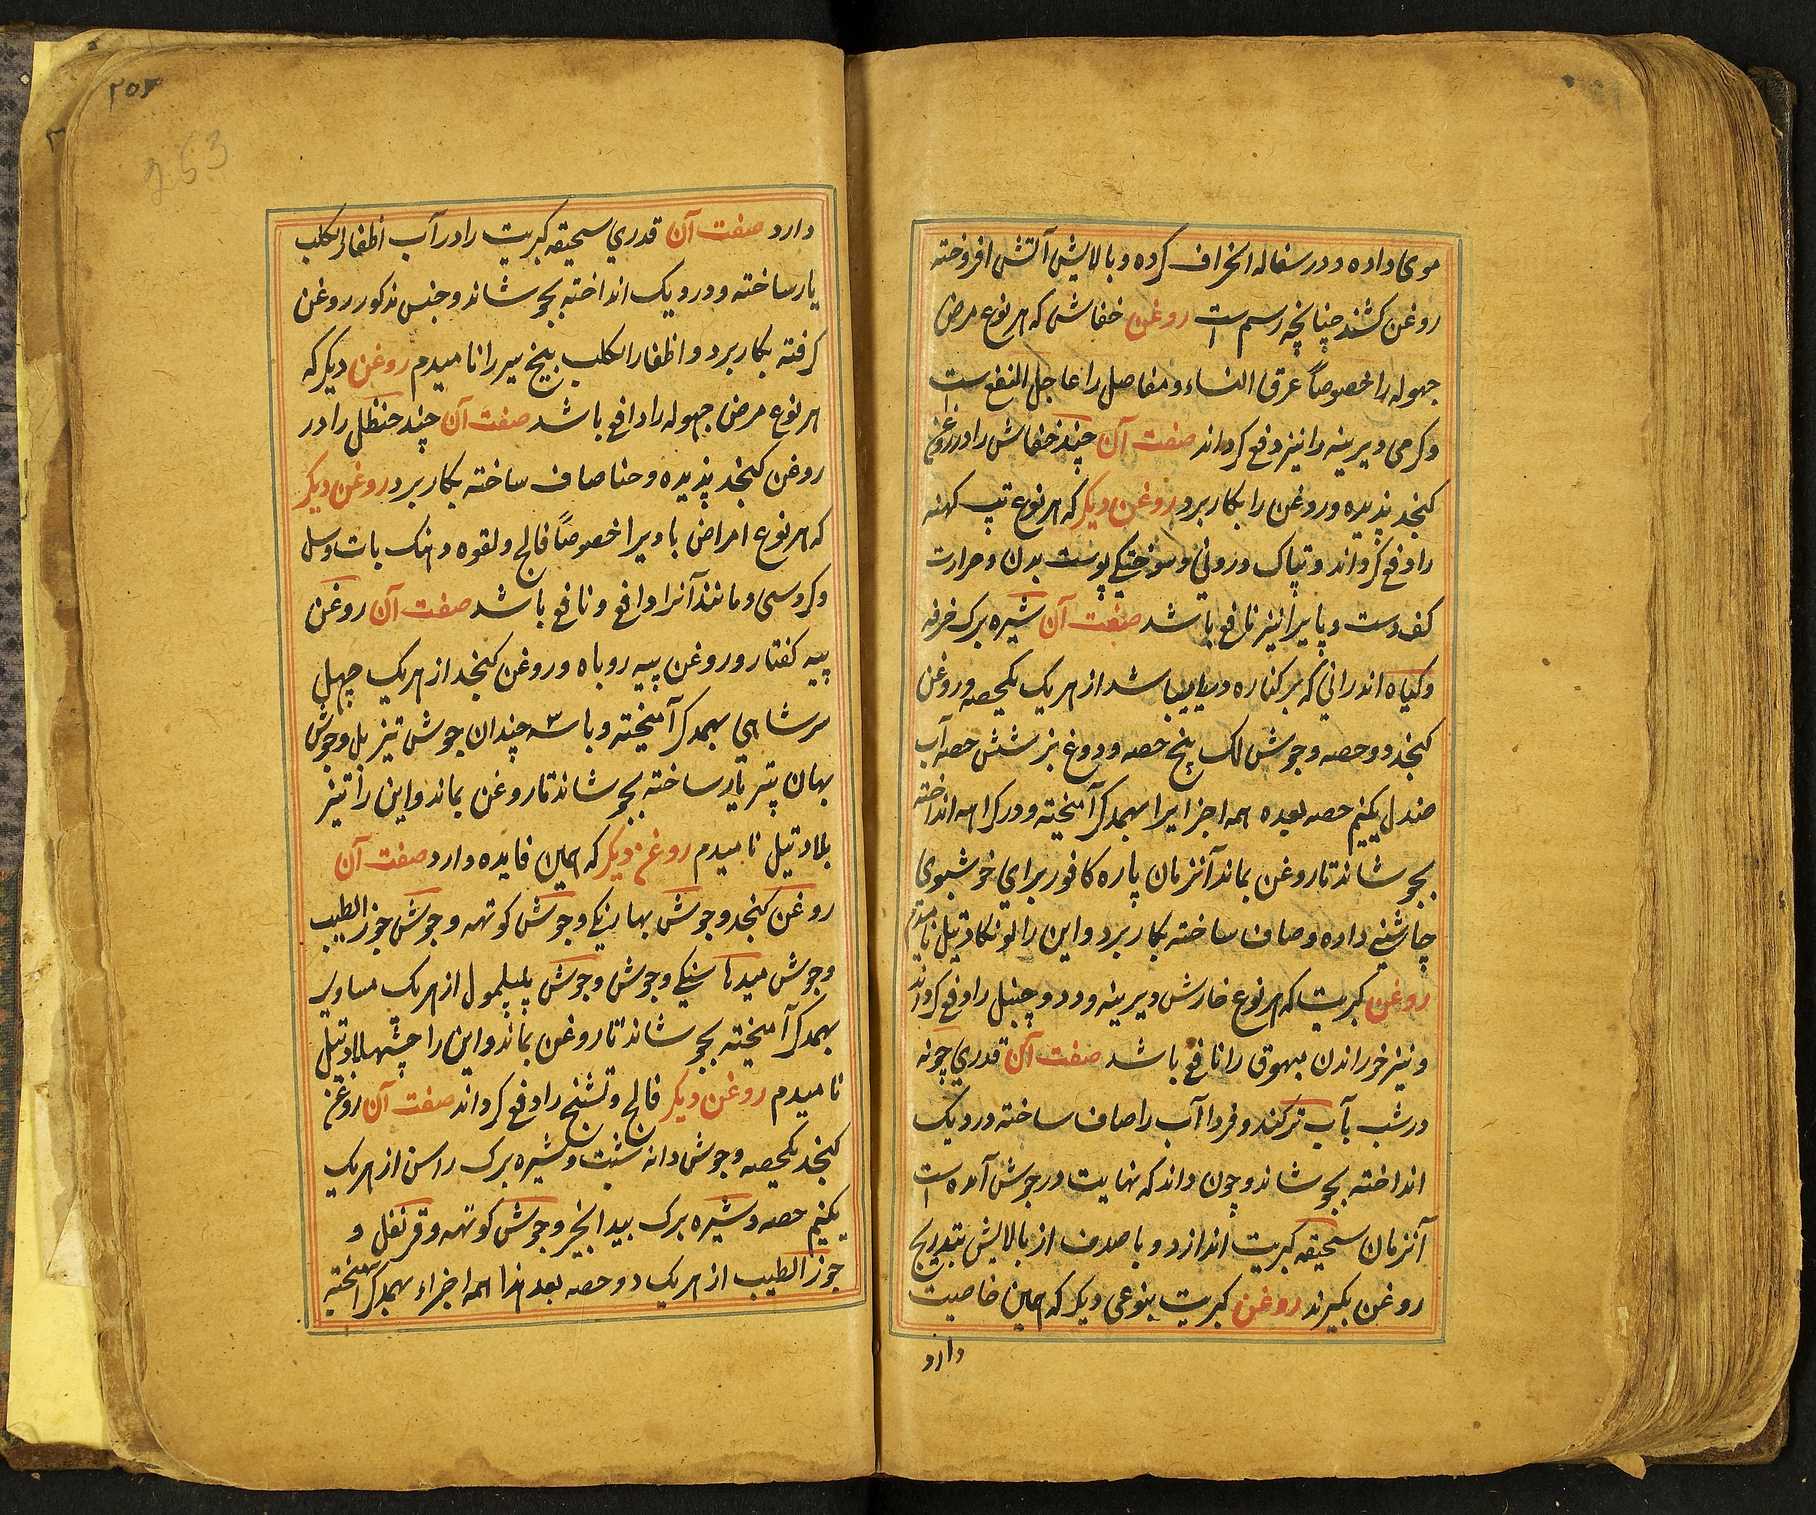 موی داده و در سفاله انحراف کرده و بالایش آتش افروخته
روغن کشند چنانچه رسم است روغن خفاش که هر نوع مرض
جهوله را خصوصاً عرق النساء و مفاصل را عاجل النفع است
و کرمی دیرینه را نیز دفع کرداند صفت آن چند خفاش را در روغن
کنجد پزیده و روغن را بکار برد روغن دیکر که هر نوع تپ کهنه
را دفع کرداند و تپاک درونی و سوختکی پوست بدن و حرارت
کف دست و پا را نیز نافع باشد صفت آن شیره برک خرفه
و کیاه اندرانی که بر کناره دریا پیدا باشد از هر یک یکحصه و روغن
کنجد دو حصه و جوش لک پنج حصه و دوغ بز شش حصه آب
صندل یکنیم حصه بعده همه اجزا یرا بهمدکر آمیخته و در کراهه انداخته
بجوشاند تا روغن بماند آنزمان پاره کافور برای خوشبوی
چاشنی داده و صاف ساخته بکار برد و این را لونکادتیل نامیدم
روغن کبریت که هر نوع خارش دیرینه و دد و چنبل را دفع کرداند
و نیز خوراندن مبهوق را نافع باشد صفت آن قدری چونه
در شب بآب تر کند و فردا آب را صاف ساخته در دیک
انداخته بجوشاند و چون داند که نهایت در جوش آمده است
آنزمان سحیقه کبریت اندازد و با صدف از بالایش بتدریج
روغن بکیرند روغن کبریت بنوعی دیکر که همین خاصیت
دارد
۲۵۳
253
دارد صفت آن قدری سحیقه کبریت را در آب اظفار الکلب
یار ساخته و در دیک انداخته بجوشاند و جنس مذکور روغن
کرفته بکار برد و اظفار الکلب بیخ سیر را نامیدم روغن دیکر که
هر نوع مرض جهوله را دافع باشد صفت آن چند حنظل را در
روغن کنجد پزیده و حنا صاف ساخته بکار برد روغن دیکر
که هر نوع امراض بادیرا خصوصاً فالج و لقوه و هنک بات و سل
و کروسی و مانند آنرا دافع و نافع باشد صفت آن روغن
پیه کفتار و روغن پیه روباه و روغن کنجد از هر یک چهل
سرشاهی بهمدکر آمیخته و با سه چندان جوش تیز بل و جوش
بهان پتر یار ساخته بجوشاند تا روغن بماند و این را تیز
بلادتیل نامیدم روغن دیکر که همین فایده دارد صفت آن
روغن کنجد و جوش بهارنکی و جوش کوتهه و جوش جوز الطیب
و جوش میدها سنیکی و جوش و جوش پلپلمول از هر یک مساوی
بهمدکر آمیخته بجوشاند تا روغن بماند و این را چشهابلادتیل
نامیدم روغن دیکر فالج و تشنج را دفع کرداند صفت آن روغن
کنجد یکحصه و جوش دانه شبت و شیره برک راسن از هر یک
یکنیم حصه و شیره برک بید انجیر و جوش کوتهه و قرنفل و
جوز الطیب از هر یک دو حصه بعد هذا همه اجزاء بهمدکر آمیخته